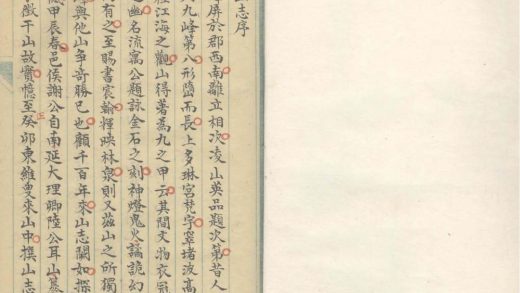 志序
屏於郡西南離立相次凌山英品題次第昔人
九峰第八形圓而長上多琳宮梵宇窣堵波高
江海之觀山得著為九之甲云其間文物衣冠
幽名流寓公題詠金石之刻神燈鬼火譎詭幻
有之至賜書宸翰輝映林泉則又茲山之所獨
與他山爭奇勝已也顧千百年來山志闕如探
憾甲辰春邑侯謝公自南延大理卿陸公耳山纂
徵干山故實憶至癸卯東維叟來山中撰山志